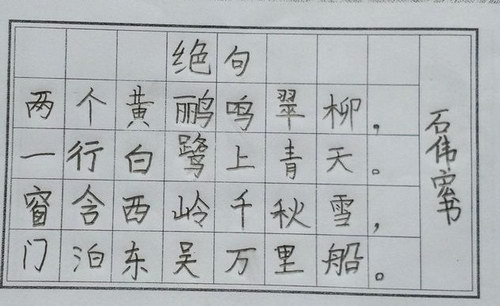 绝句
两个黄鹂鸣翠柳，
一行白鹭上青天。
窗含西岭千秋雪，
门泊东吴万里船。
石伟宏书